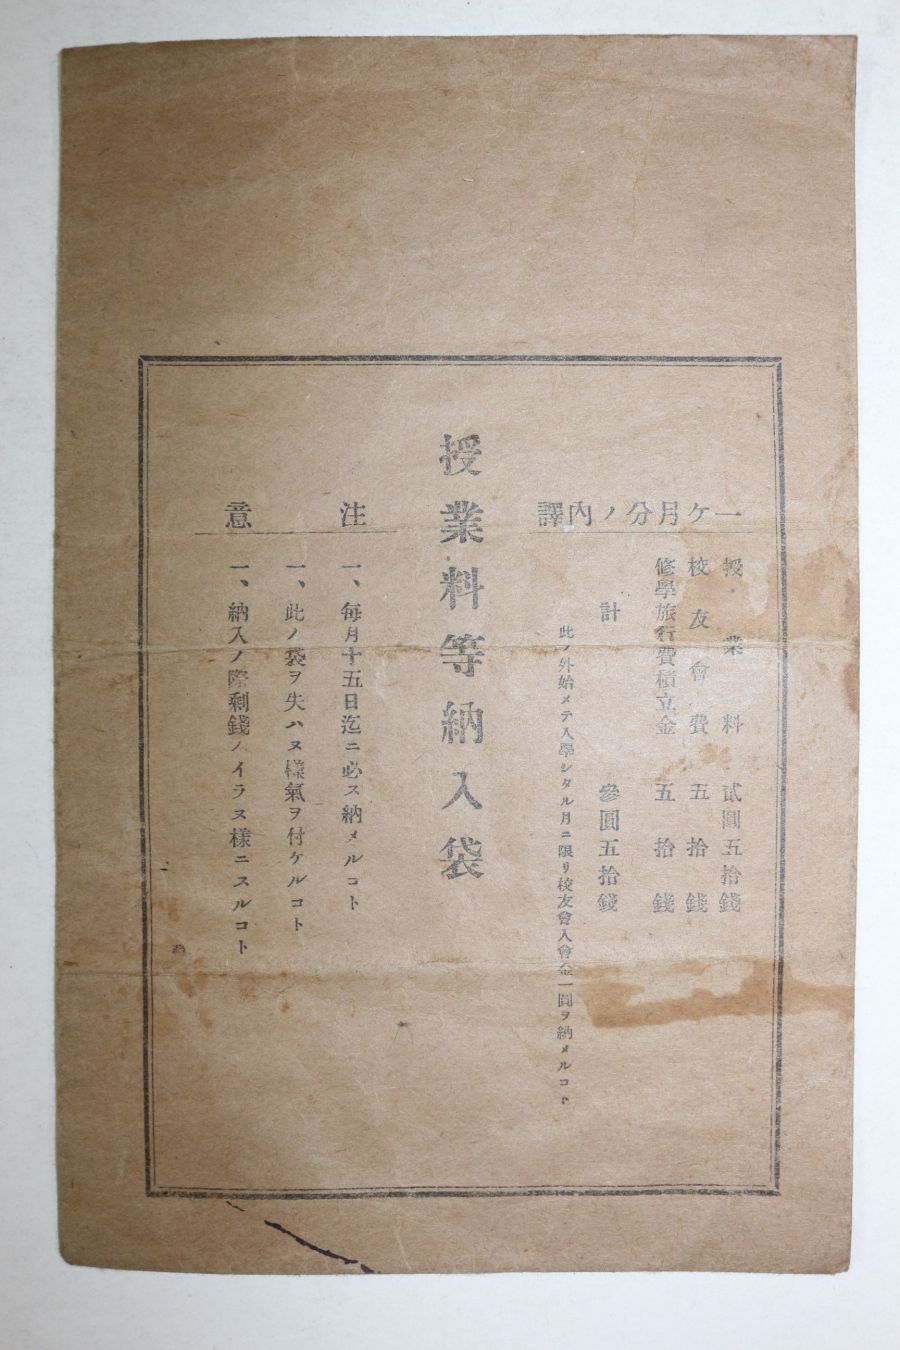 一ケ月分ノ內譯
授業料 貳圓五拾錢
校友會費 五拾錢
修學旅行費積立金 五拾錢
計 參圓五拾錢
此ノ外始メテ入學シタル月ニ限リ校友會入會金一圓ヲ納メルコト
授業料等納入袋
注意
一、每月十五日迄ニ必ス納メルコト
一、此ノ袋ヲ失ハヌ樣氣ヲ付ケルコト
一、納入ノ際剩錢ノイラヌ樣ニスルコト